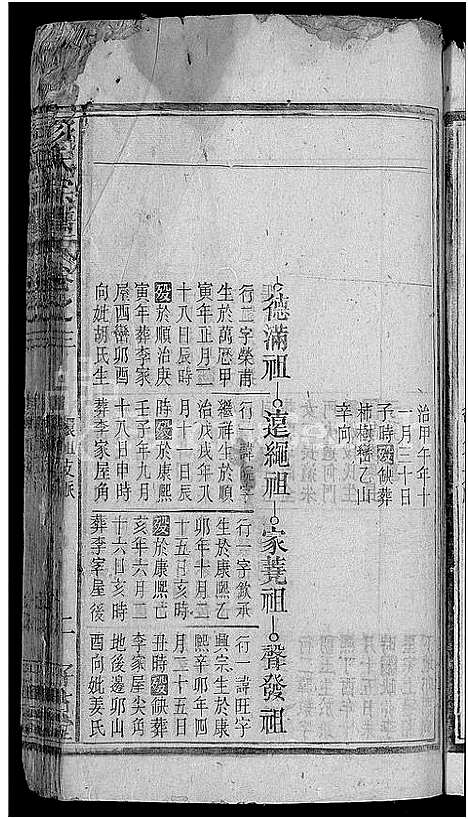 治甲午年十
一月三十日
子時歿缺葬
柿樹巒乙山
辛向
德滿祖
行二字榮甫
生於萬厯甲
寅年正月二
十八日辰時
歿於順治庚
寅年葬李家
屋西巒卯酉
向妣胡氏生
遠繩祖
行一諱
繼祥生於順
治戊戌年八
月十一日辰
時歿於康熙
壬子年九月
十八日申時
葬李家屋角
家蕘祖
行一字欽承
生於康熙乙
卯年十月二
十五日亥時
歿於康熙己
亥年六月二
十六日亥時
葬李家屋後
聲發祖
行一諱旺字
興宗生於康
熙辛卯年四
月二十五日
丑時歿缺葬
李家屋尖角
地後邊卯山
酉向妣姜氏
氏宗譜卷之三